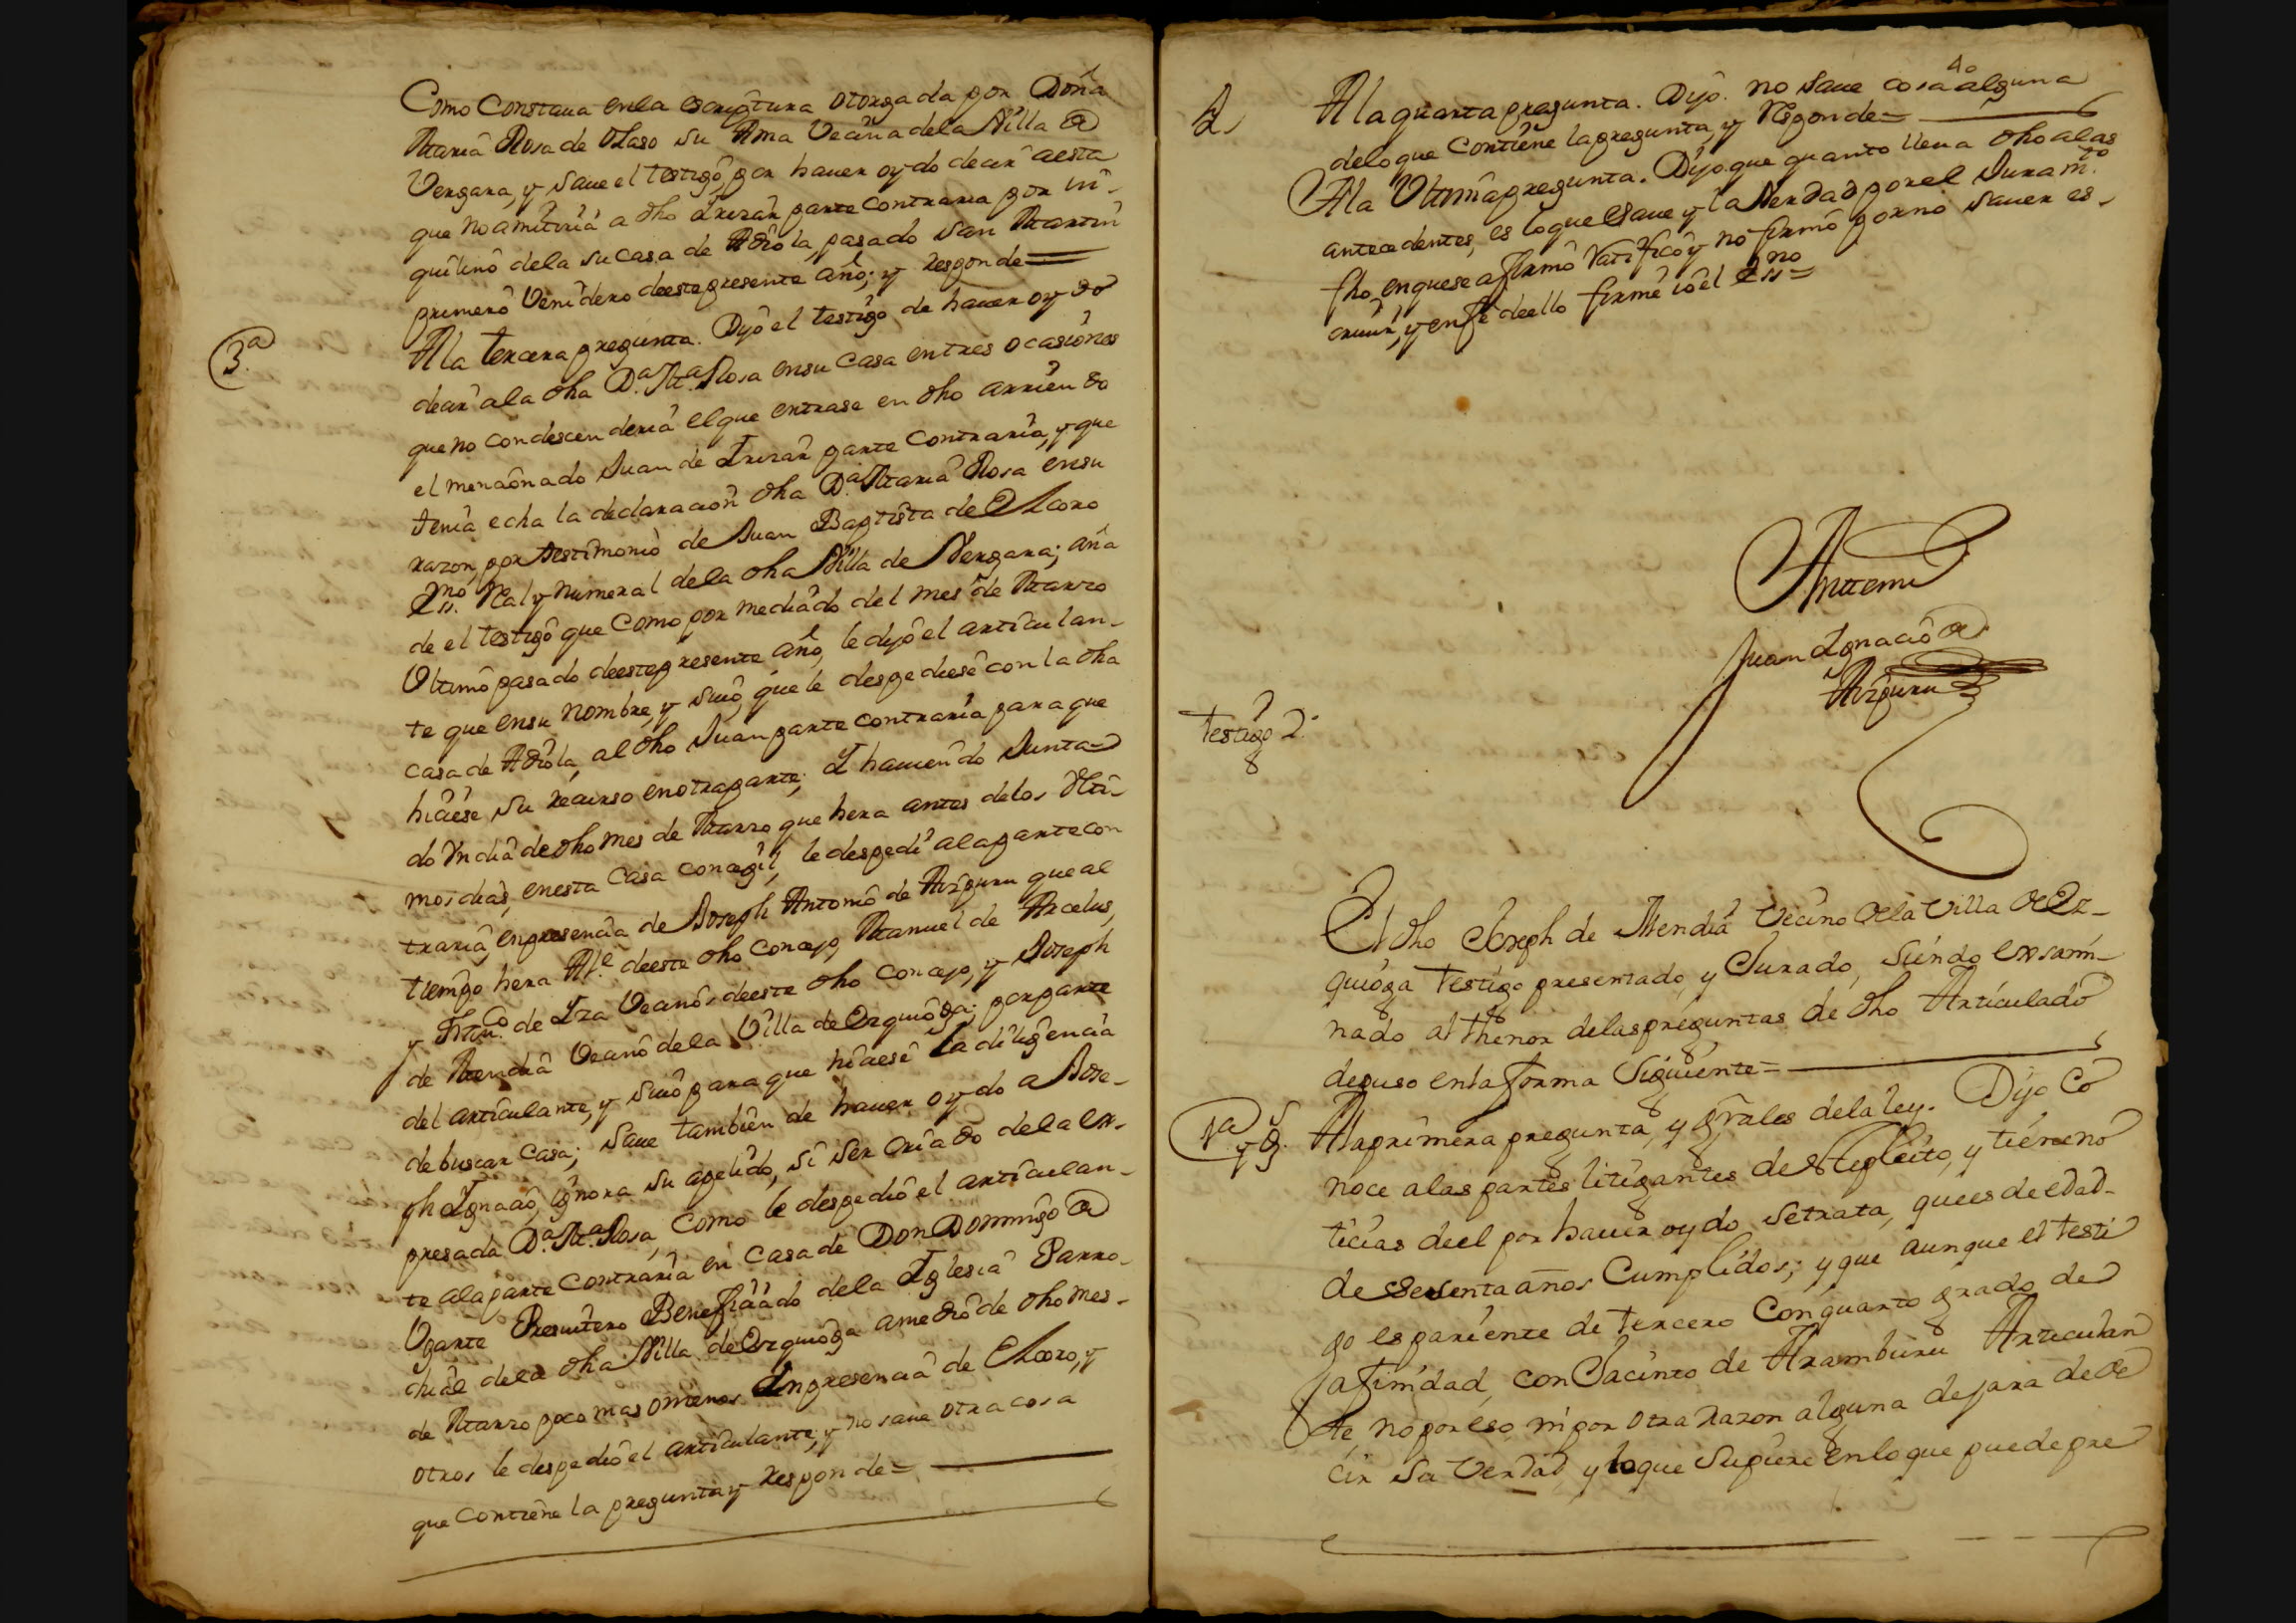 Como Constaua enla escriptura otorgada por Doña
Maria Rosa de Olaso su Ama Vecina dela Villa de
Vergara, y saue el testigo, por hauer oydo decir aesta
que no amitiria a dho Irizar parte contraria por in-
quilino dela su casa de Adiola, pasado san Martin
primero Venidero deestepresente año; y responde=
3.a
Ala tercera pregunta. Dijo el testigo de hauer oydo
decir ala dha D.a M.a Rosa ensu casa entres ocasiones
que no condescenderia elque entrase en dho arriendo
el mencionado Juan de Irizar parte contraria, y que
tenia echa la declaracion dha D.a Maria Rosa ensu
razon, por testimonio de Juan Baptista de Elcoro
Ess.no Real y numeral dela dha Villa de Vergara; aña
de el testigo que como por mediado del mes de Marzo
Vltimo pasado deestepresente año, le dijo el articulan-
te que ensu nombre, y suio, que le despediese con la dha
casa de Adiola, al dho Juan parte contraria para que
hiciese su recurso enotraparte; I hauiendo Junta-
do Vn dia de dho mes de Marzo que hera antes delos Vlti-
mos dias, enesta Casa concegil, le despedi alaparte con
traria, enpresencia de Joseph Antonio de Aizpuru que al
tiempo hera Al.e deeste dho Concejo, Manuel de Arcelus,
y Fran.co de Iza Vecinos deeste dho concejo, y Joseph
de Mendia Vecino dela Villa de Ezquioga; porparte
del articulante, y suio para que hiciese la diligencia
debuscar casa; saue tambien de hauer oydo a Jose-
ph Ignacio, ignora su apelido, si ser criado dela ex-
presada D.a M.a Rosa, como le despedio el articulan-
te alaparte contraria en casa de Don Domingo de
Vgarte Presuitero Beneficiado dela Iglesia Parro-
chial dela dha Villa deEzquioga amedio de dho mes-
de Marzo poco mas omenos Enpresencia de Elcoro, y
otros le despedio el articulante, y no saue otra cosa
que contiene la pregunta y responde=
40
4.
Ala quarta pregunta. Dijo. no saue cosa alguna
deloque contiene lapregunta, y Responde=
Ala Vltima pregunta. Dijo que quanto lleua dho alas
antecedentes, es loque saue y la Verdad porel Juram.to
fho, enquese afirmo ratifico y no firmo porno sauer es-
criuir, y enfe deello firme io el Ess.no=
Antemi
Juan Ignacio de
Aizpuru
Testigo 2.
El dho Joseph de Mendia Vecino dela Villa de Ez-
quioga Testigo presentado, y Jurado, siendo exsami-
nado al thenor delaspreguntas de dho Articulado
depuso enla forma siguiente=
1.a y g.s
Ala primera pregunta, y grales dela ley. Dijo Co
noce alas partes litigantes de estepleito, y tiene no
ticias deel por hauer oydo, setrata, quees de edad-
de sesenta años Cumplidos; y que aunque el testi
go es pariente de tercero Con quarto grado de
afinidad, con Jacinto de Aramburu Articulan
te, no por eso ni por otra razon alguna dejara de de
cir su Verdad, y loque supiere enloque puede pre